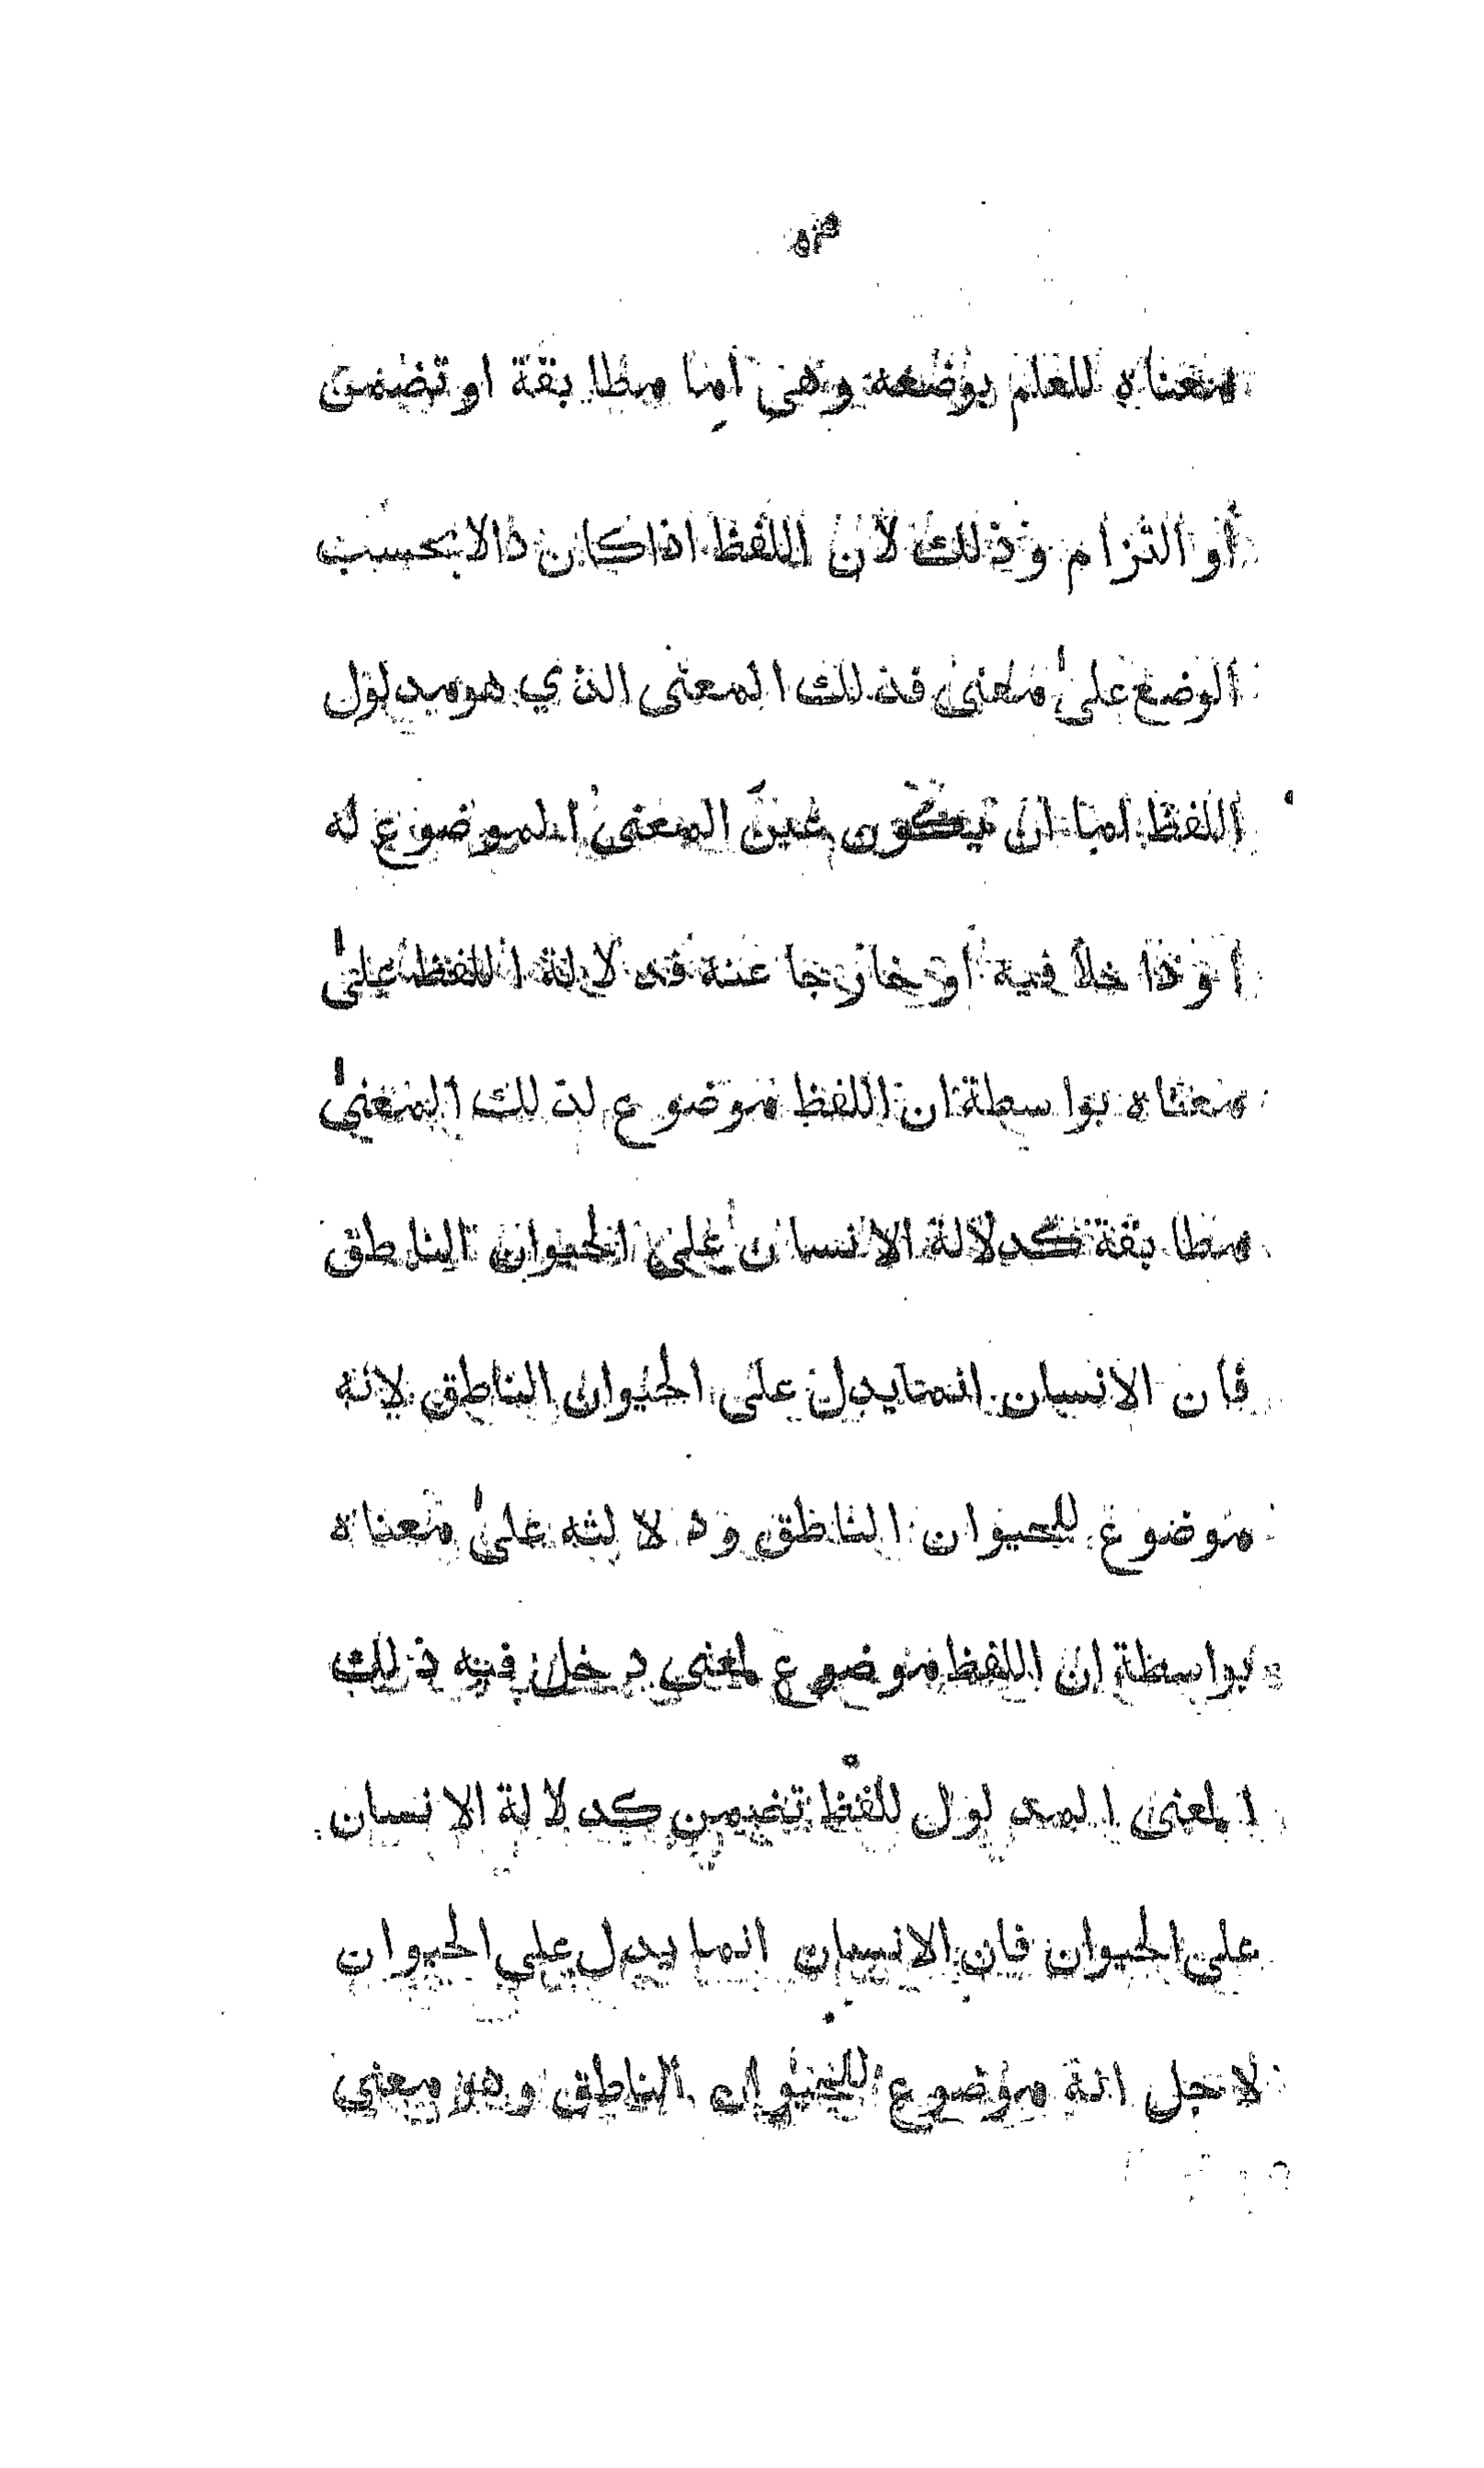 معناه للعلم بوضعه وهي اما مطابقة او تضمن
أو التزام وذلك لأن اللفظ اذا كان دالا بحسب
الوضع على معنى فذلك المعنى الذي هو مدلول
اللفظ اما ان يكون عين المعنى الموضوع له
او داخلا فيه أو خارجا عنه فدلالة اللفظ على
معناه بواسطة ان اللفظ موضوع لذلك المعنى
مطابقة كدلالة الانسان على الحيوان الناطق
فان الانسان انما يدل على الحيوان الناطق لانه
موضوع للحيوان الناطق ودلالته على معناه
بواسطة ان اللفظ موضوع لمعنى دخل فيه ذلك
المعنى المدلول للفظ تضمن كدلالة الانسان
على الحيوان فان الانسان انما يدل على الحيوان
لاجل انه موضوع للحيوان الناطق وهو معنى